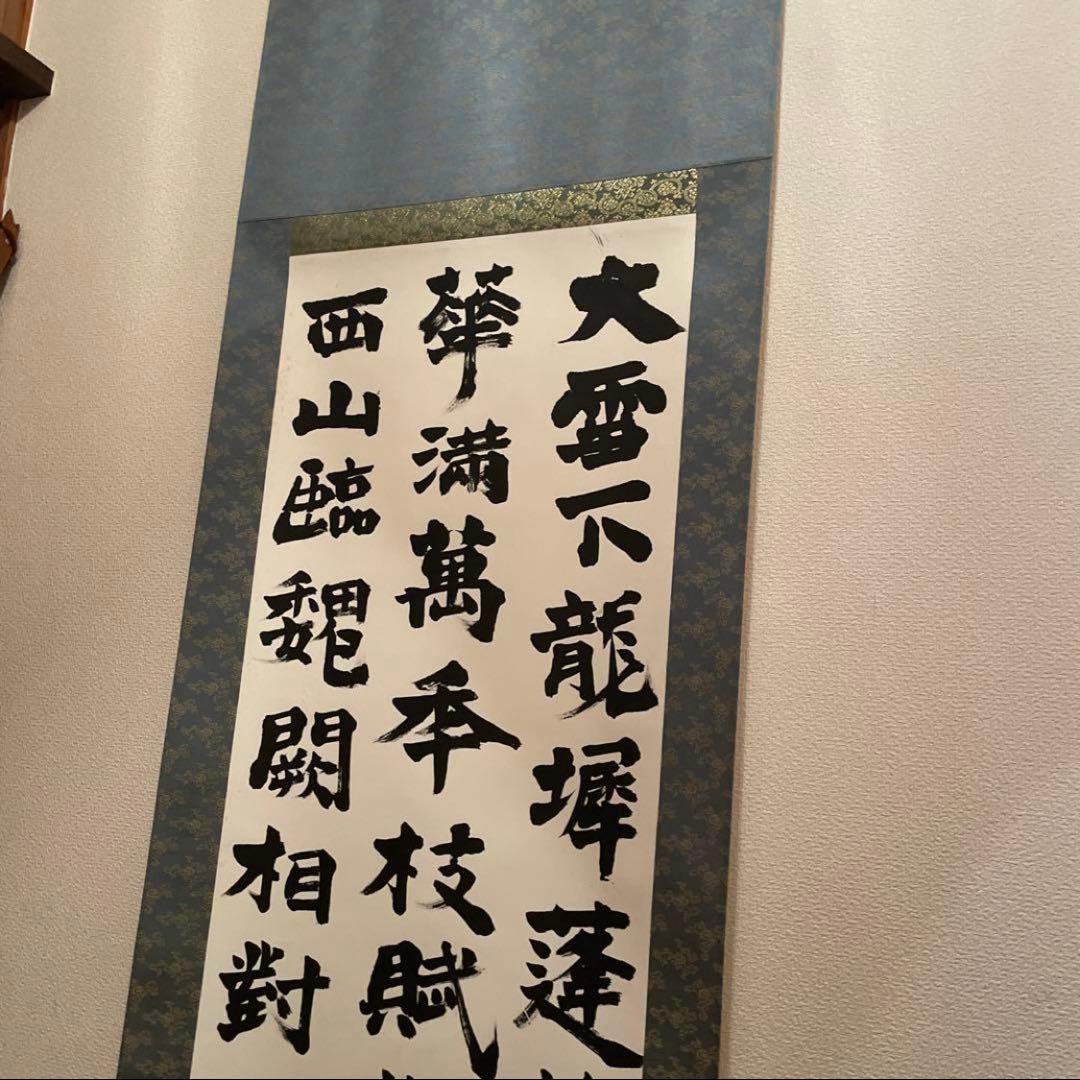 大雪下龍墀蓬
華滿萬年枝賦
西山臨魏闕相對